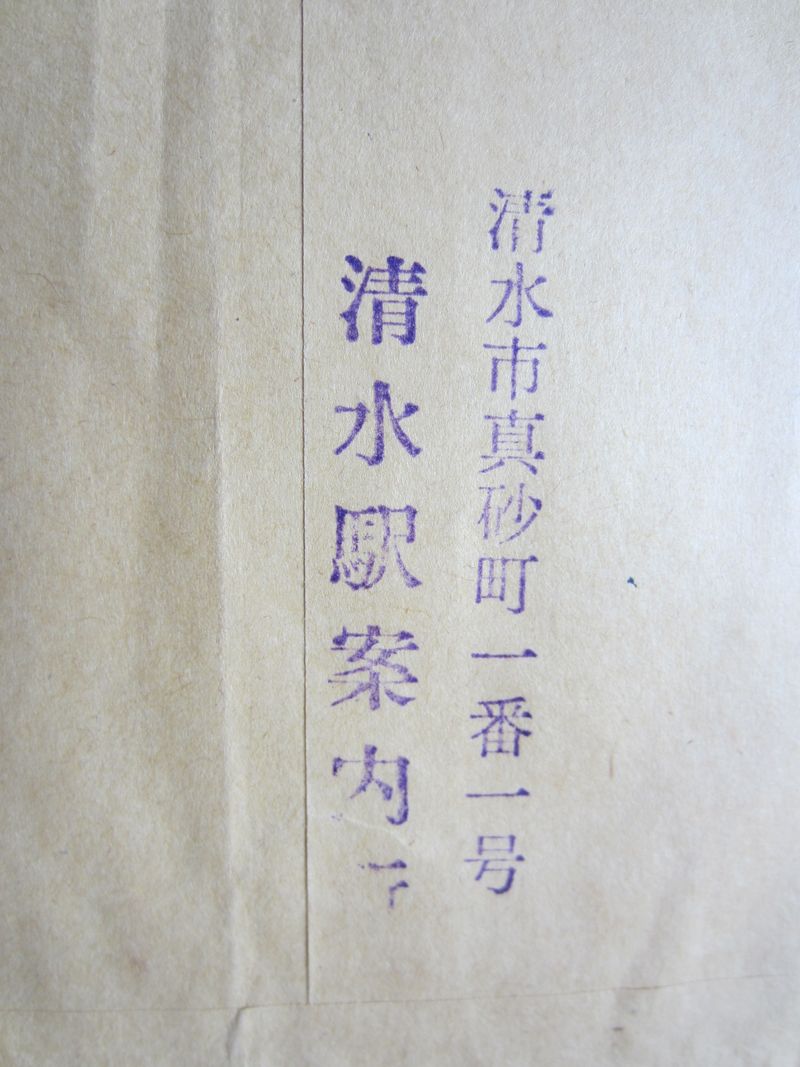 清水市真砂町一番一号
清水駅案内